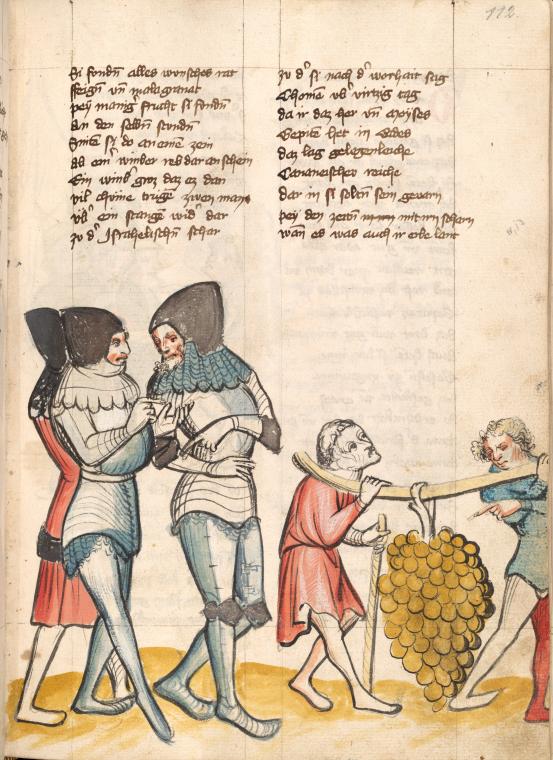 112.
Si fondn alles wunsches rat
ffeign vn malagranat
pey manig frucht si fondn
An den selbn stundn
Snite si do an aine zein
ab ein winber reb dar an schein
Ein winb groz daz ez dan
vil chome trug zwen man
vb ein stange wid dar
zu d Israhelischn schar
zu d si nach d worhait sag
Chomen vb virtzig tag
da ir daz her vn Moyses
Gepite het in Cades
daz lag gelegenleiche
Cananeischer reiche
dar in si soltn sein gevarn
pey den zeitn mit irn scharn
wan es was auch ir erbe lant